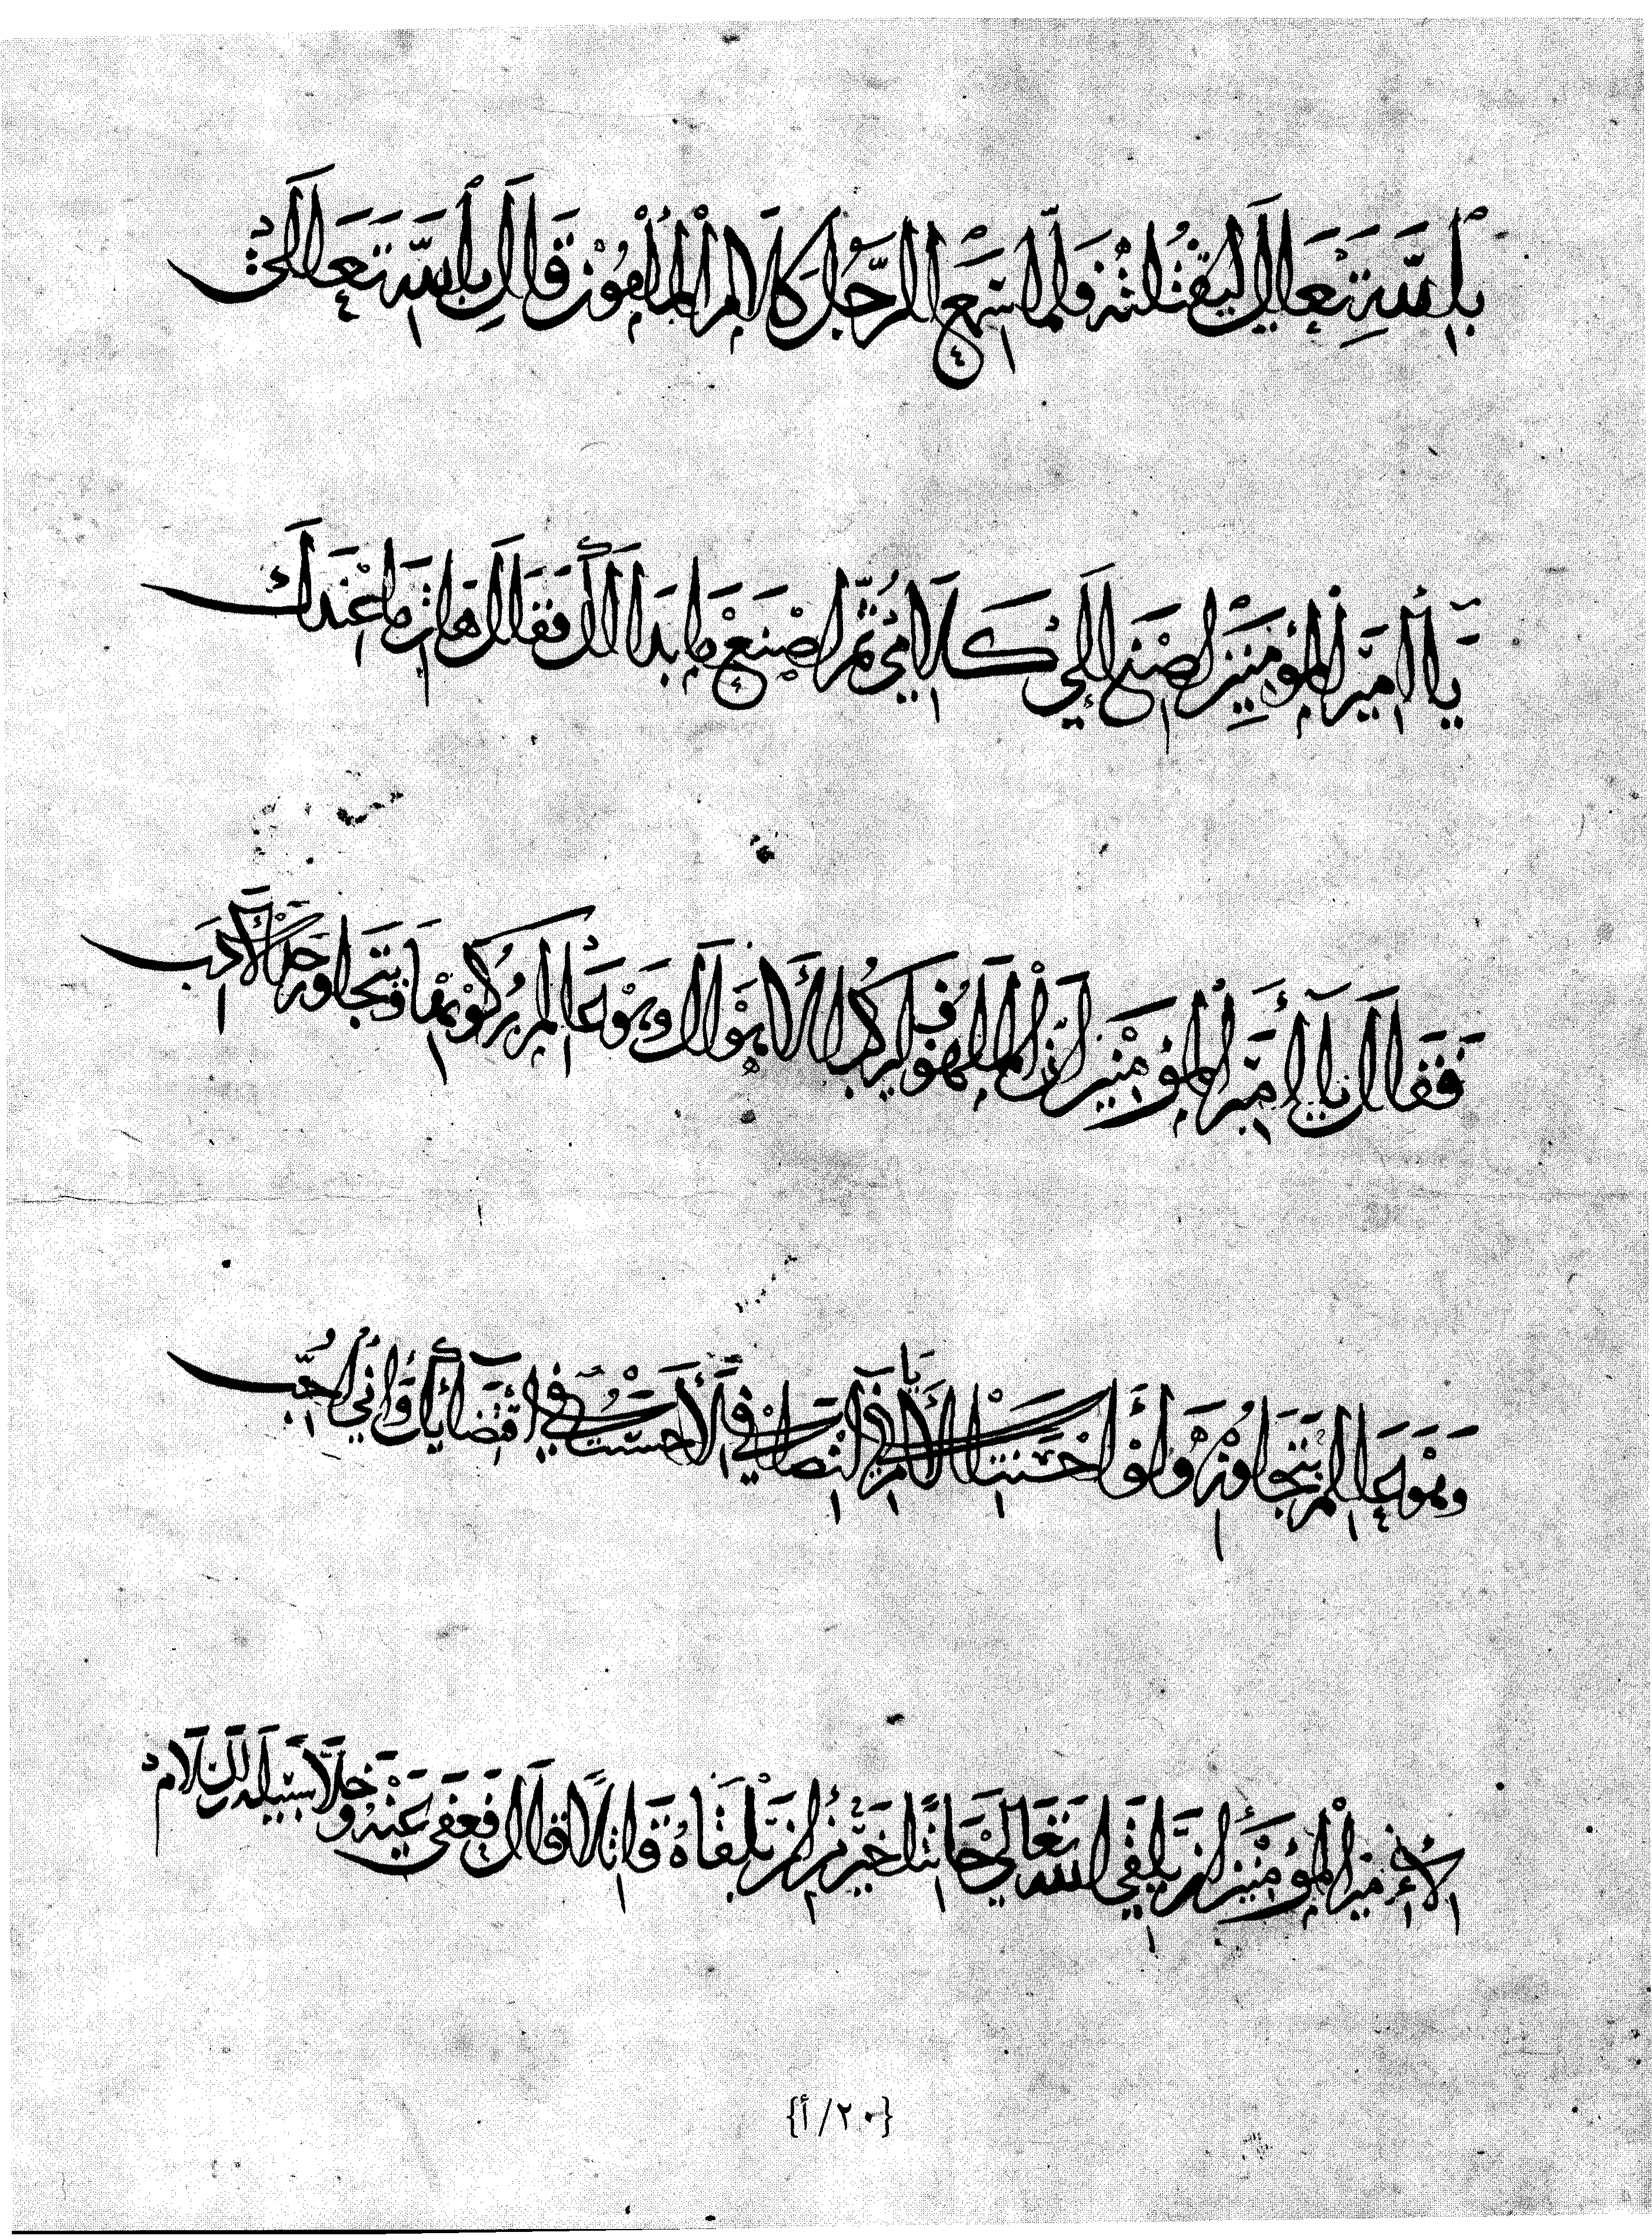 باللّٰه تعالى ليقتلنه فلما سمع الرجل كلام المأمون قال بالله تعالى
يا أمير المؤمنين اصنع إلى كلامي ثم اصنع ما بدا لك فقال هات ما عندك
فقال يا أمير المؤمنين إن الملهوف يركب الأهوال وهو عالم بركوبها ويتجاوز حد الأدب
وهو عالم بتجاوزه ولو أحسنت الأيام في انصافي لأحسنت في اقتضائك وإني أحب
لأمير المؤمنين أن يلقى الله تعالى حانثا خير من أن تلقاه قاتلا قال فعفى عنه وخلا سبيله والسلام
{٢٠/أ}